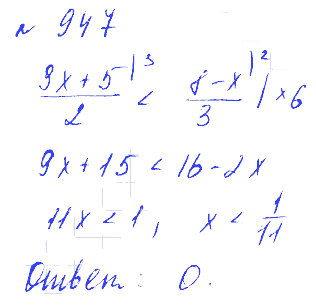 № 947
(3x+5)/2 |³ < (8-x)/3 |² | ×6
9x+15 < 16-2x
11x < 1, x < 1/11
Ответ: 0.